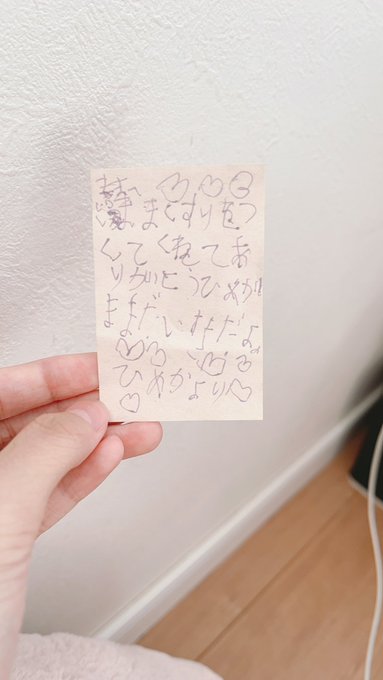 ままへ
ままくすりをつ
くてくれてあ
りがとうひめか
ままだいすきだよ
ひめかより